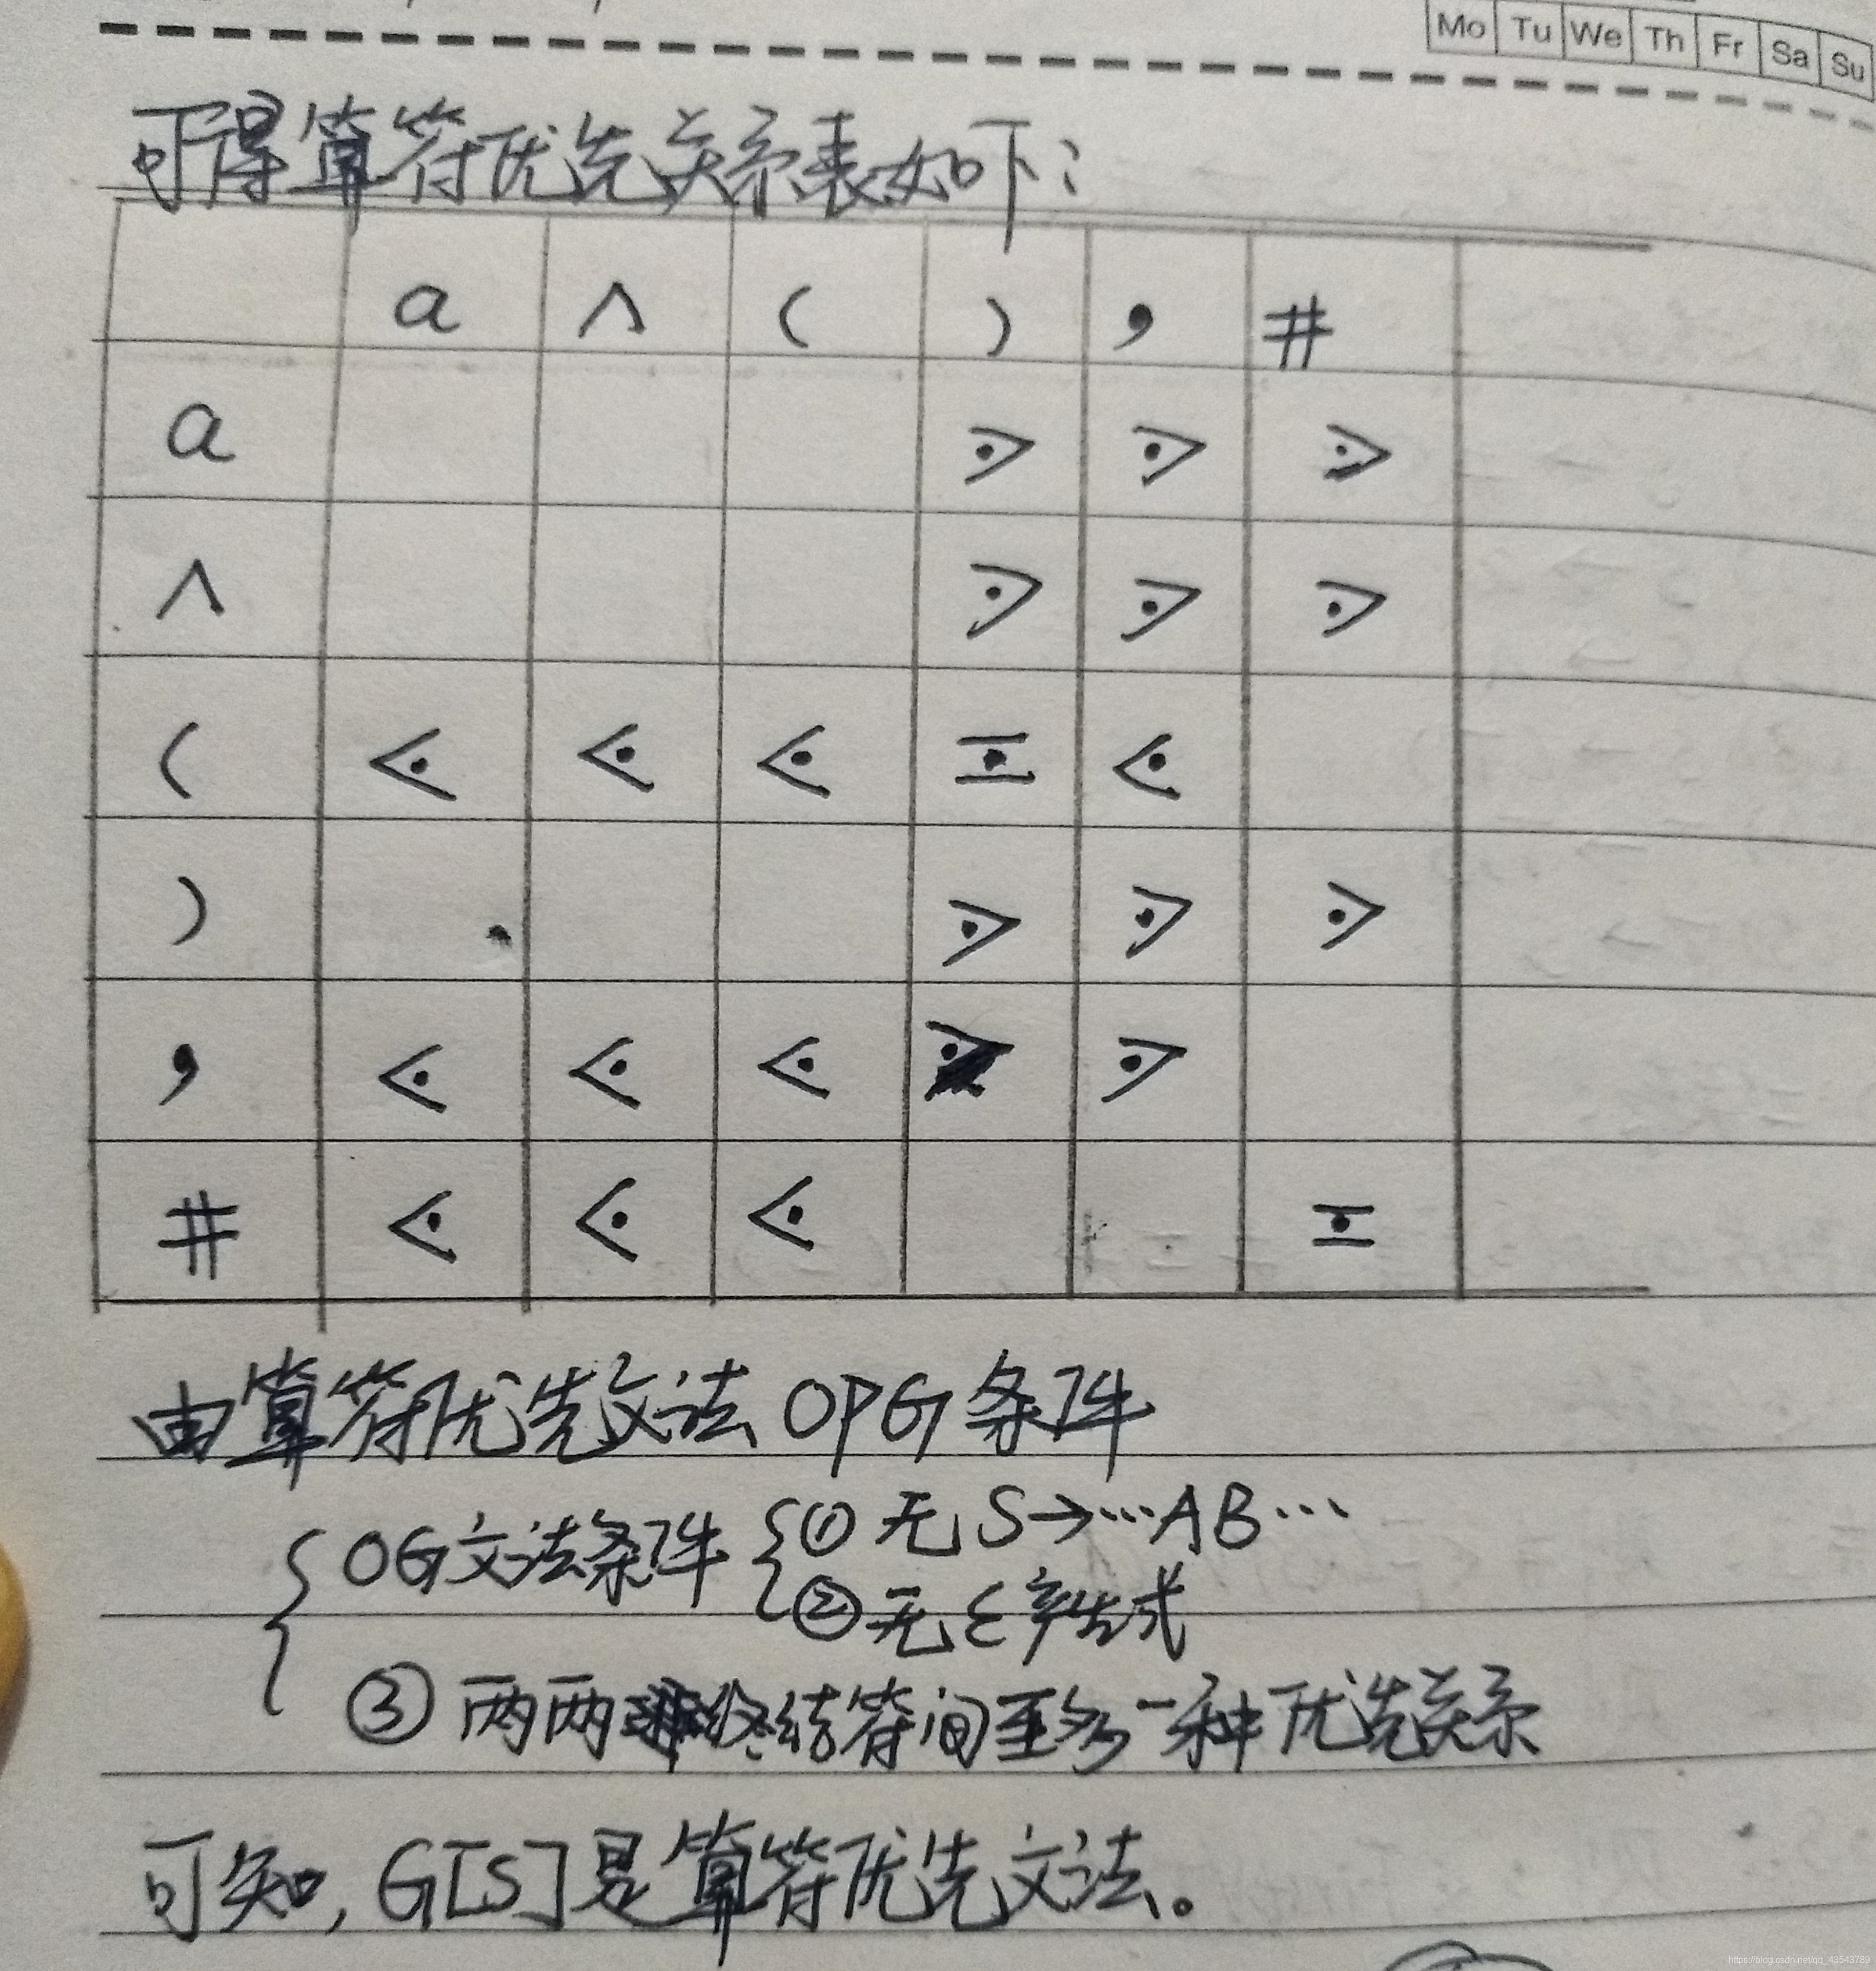 Mo Tu We Th Fr Sa Su
可得算符优先关系表如下:
a ∧ ( ) , #
a ⋗ ⋗ ⋗
∧ ⋗ ⋗ ⋗
( ⋖ ⋖ ⋖ ≐ ⋖
) ⋗ ⋗ ⋗
, ⋖ ⋖ ⋖ ⋗ ⋗
# ⋖ ⋖ ⋖ ≐
由算符优先文法OPG条件
OG文法条件 ① 无S→…AB…
② 无ε产生式
③ 两两终结符间至多一种优先关系
可知,G[S]是算符优先文法。
https://blog.csdn.net/qq_43543789